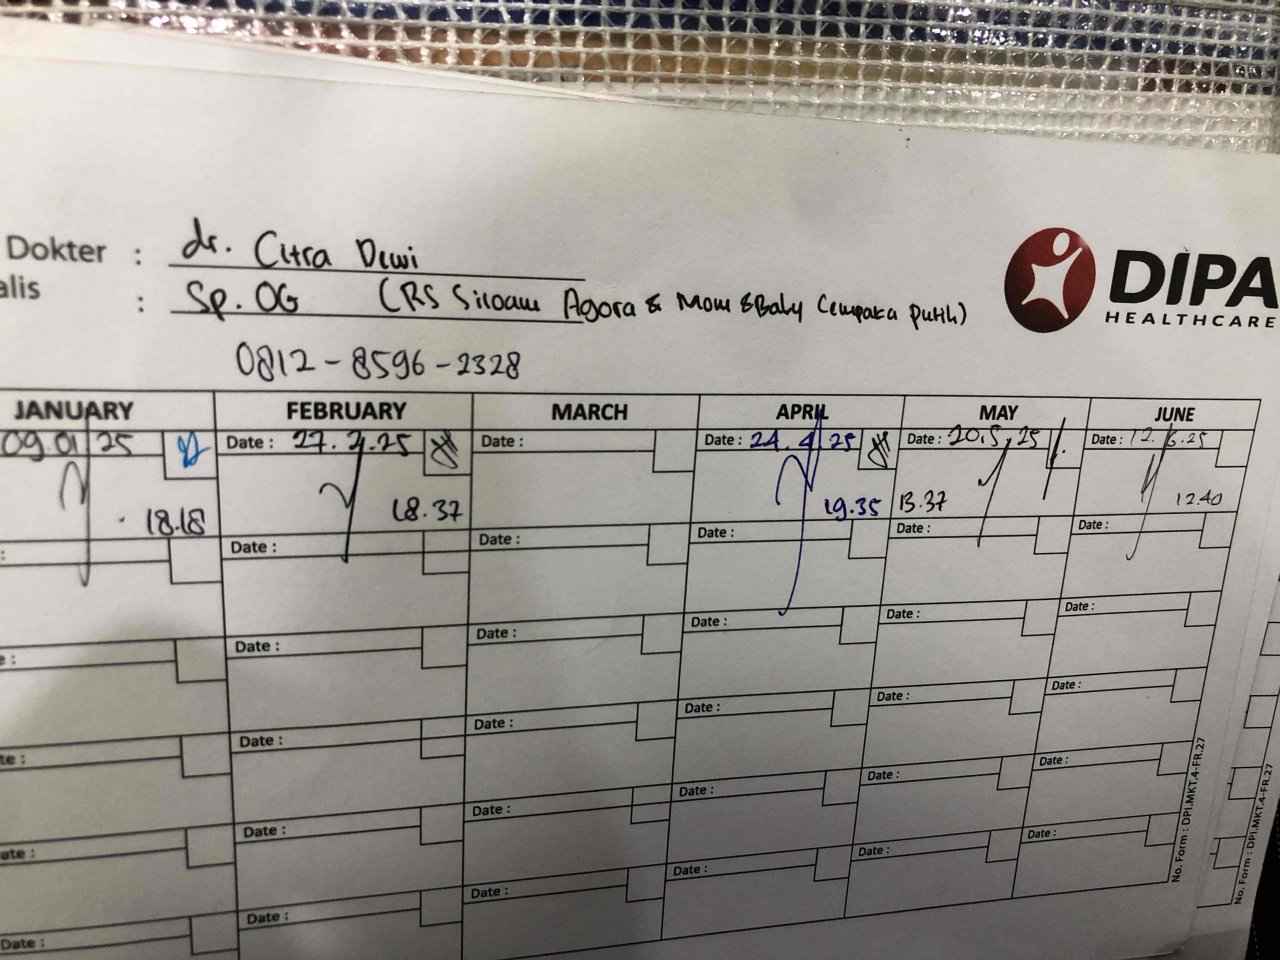 Dokter : dr. Citra Dewi
alis : Sp. OG (RS Siloam Agora & Mom & Baby Cempaka Putih)
DIPA
HEALTHCARE
0812-8596-2328
JANUARY FEBRUARY MARCH APRIL MAY JUNE
09.01.25 Date : 27.2.25 Date : Date : 24.4.25 Date : 20.5.25 Date : 12.6.25
18.18 18.37 19.35 13.37 12.40
: Date : Date : Date : Date : Date :
e : Date : Date : Date : Date : Date :
te : Date : Date : Date : Date : Date :
ate : Date : Date : Date : Date : Date :
Date : Date : Date : Date : Date : Date :
No. Form : DPI.MKT.4-FR.27
No. Form : DPI.MKT.4-FR.27